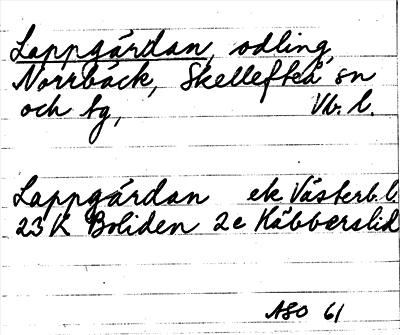 Lappgårdan, odling,
Norrbäck, Skellefteå sn
och tg, Vb. l.
Lappgårdan ek Västerb.l.
23 K Boliden 2e Häbberslid
ASO 61